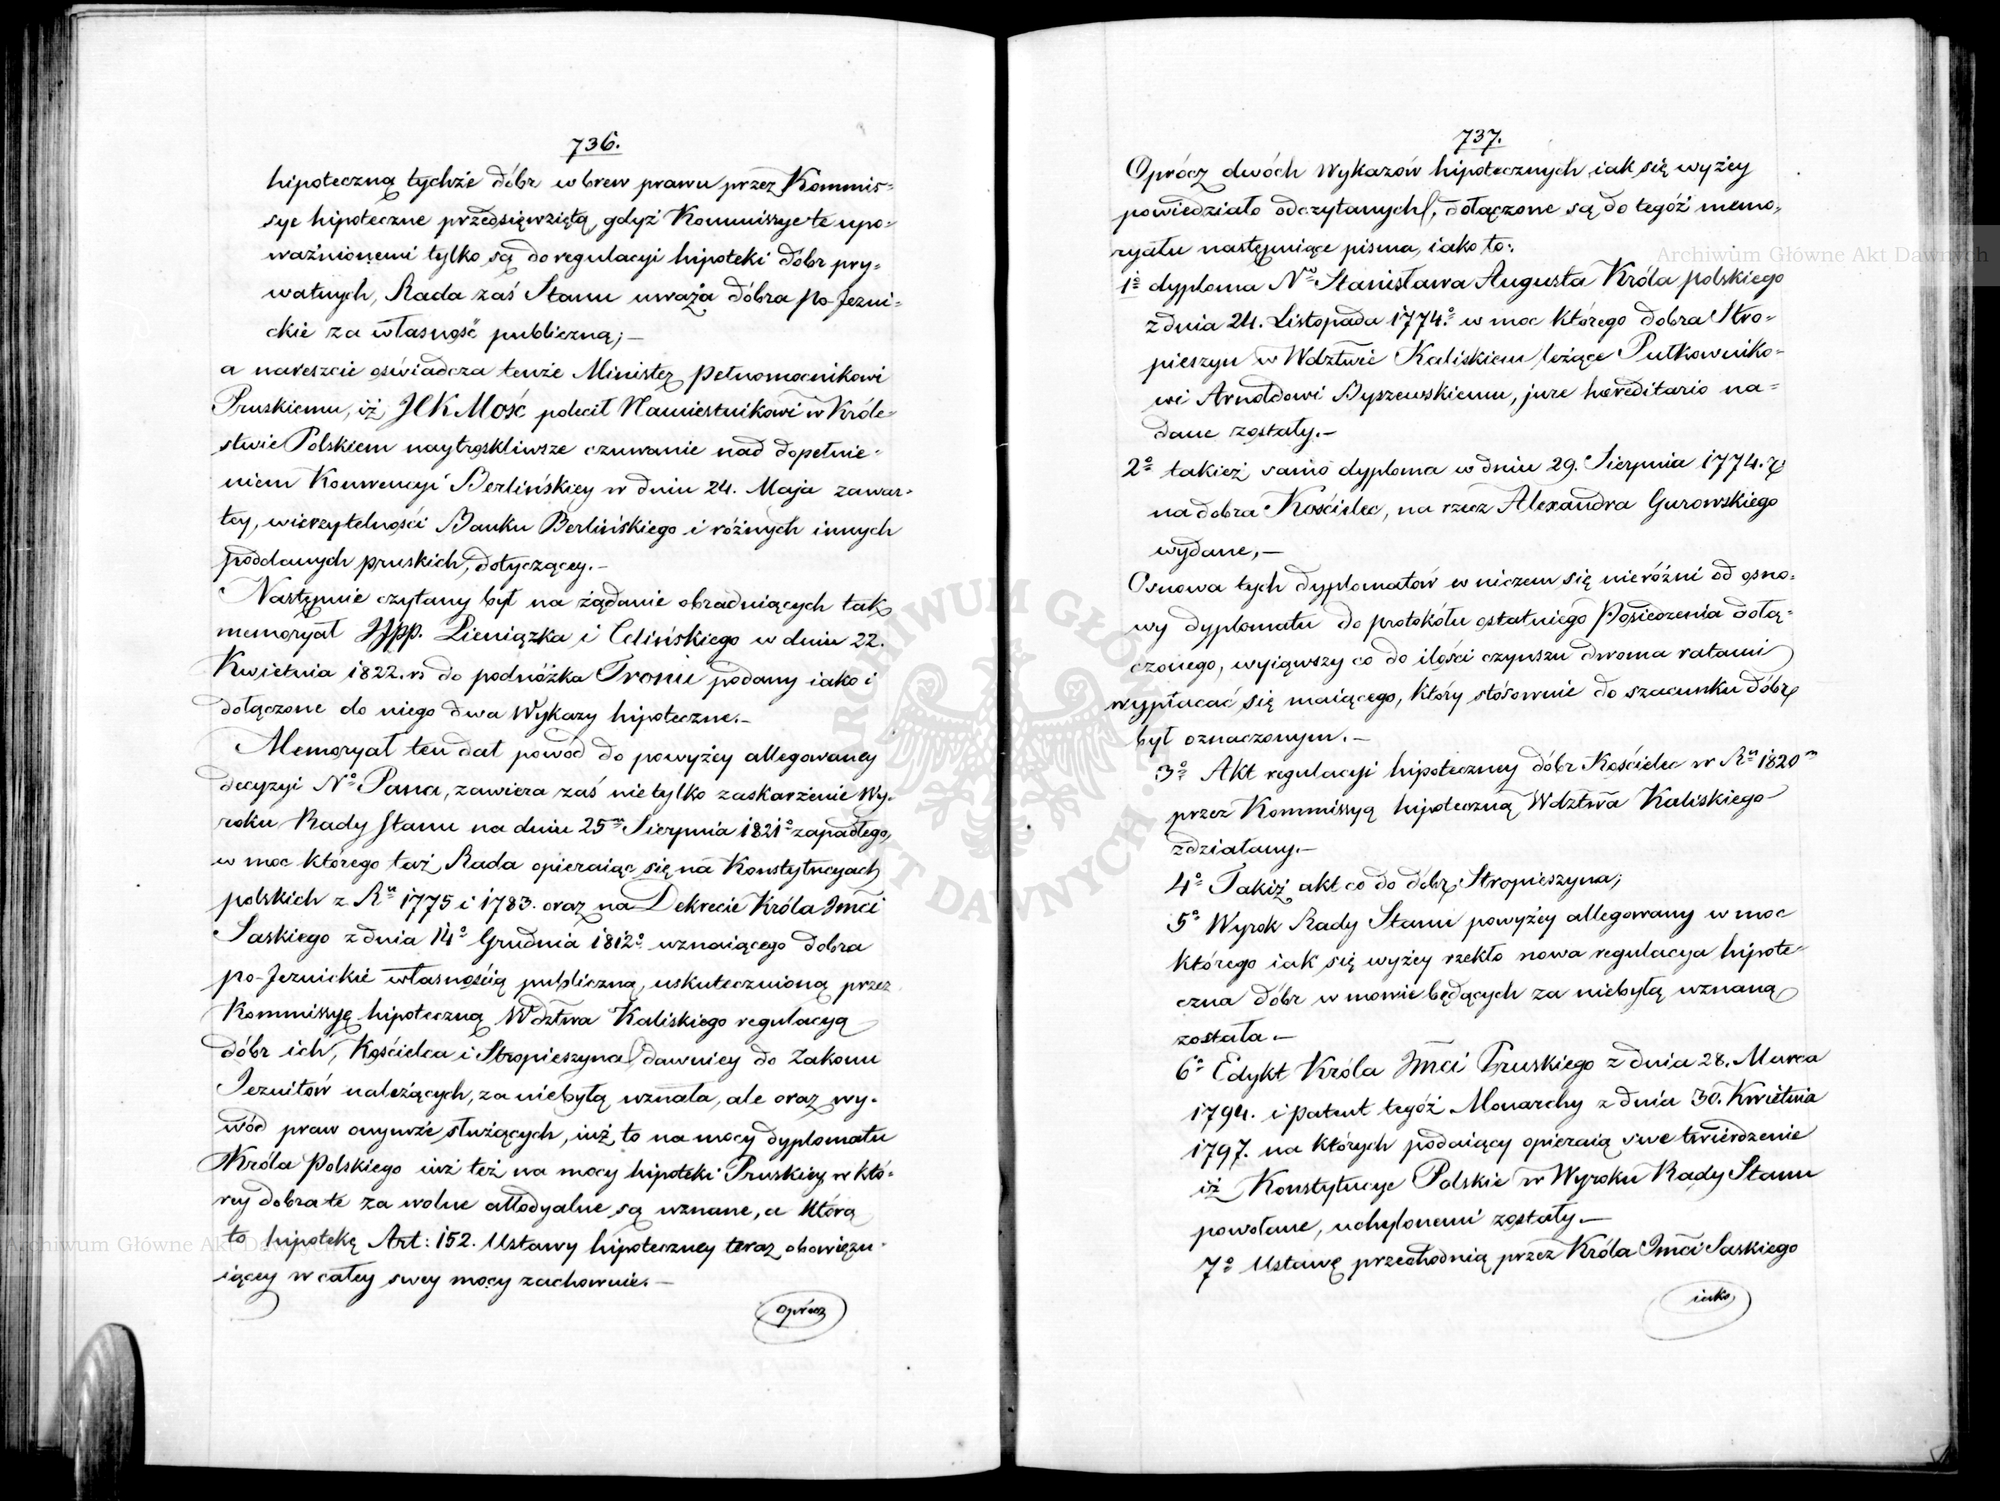 736.
hipoteczną tychże dóbr wbrew prawu przez Kommis=
sye hipoteczne przedsięwziętą, gdyż Kommissye te upo=
ważnionemi tylko są do regulacyi hipoteki dobr pry=
watnych, Rada zaś Stanu uważa dóbra po-Jezui=
ckie za własność publiczną; —
a nareszcie oświadcza tenże Minister Pełnomocnikowi
Pruskiemu, iż JCK Mość polecił Namiestnikowi w Króle=
stwie Polskiem naytroskliwsze czuwanie nad dopełnie=
niem Konwencyi Berlińskiey w dniu 24. Maja zawar=
tey, wierzytelności Banku Berlińskiego i różnych innych
poddanych pruskich, dotyczącey. —
Następnie czytany był na żądanie obradujących tak
memoryał JJpp. Lieniązka i Celińskiego w dniu 22.
Kwietnia 1822. r. do podnóżka Tronu podany iako i
dołączone do niego dwa Wykazy hipoteczne. —
Memoryał ten dał powód do powyżey allegowaney
decyzyi No Pana, zawiera zaś nietylko zaskarżenie Wy=
roku Rady Stanu na dniu 25m Sierpnia 1821o zapadłego,
w moc którego taż Rada opieraiąc się na Konstytucyach
polskich z Ru 1775 i 1783. oraz na Dekrecie Króla Jmci
Saskiego z dnia 14o Grudnia 1812o uznaiącego dobra
po-Jezuickie własnością publiczną, uskutecznioną przez
Kommissyę hipoteczną Wdztwa Kaliskiego regulacyą
dóbr ich, Kościelca i Stropieszyna dawniey do Zakonu
Jezuitów należących, za niebyłą uznała, ale oraz wy=
wód praw onymże służących, iuż to na mocy dyplomatu
Króla Polskiego iuż też na mocy hipoteki Pruskiey w któ=
rey dobra te za wolne allodyalne są uznane, a którą
to hipotekę Art: 152. Ustawy hipoteczney teraz obowięzu=
iącey w całey swey mocy zachownie. —
oprócz
737.
Oprócz dwóch Wykazów hipotecznych iak się wyżey
powiedziało odczytanych, dołączone są do tegóż memo=
ryału następuiące pisma, iako to:
1o dyploma No Stanisława Augusta Króla polskiego
z dnia 24. Listopada 1774.o w moc którego dobra Stro=
pieszyn w Wdztwie Kaliskiem leżące Pułkowniko=
wi Arnoldowi Byszewskiemu, jure hæreditario na=
dane zostały. —
2o takież samo dyploma w dniu 29. Sierpnia 1774. r.
na dobra Kościelec, na rzecz Alexandra Gurowskiego
wydane, —
Osnowa tych dyplomatów w niczem się nieróżni od osno=
wy dyplomatu do protokółu ostatniego Posiedzenia dołą=
czonego, wyiąwszy co do ilości czynszu dwoma ratami
wypłacać się maiącego, który stósownie do szacunku dóbr
był oznaczonym. —
3o Akt regulacyi hipoteczney dóbr Kościelec w Ru 1820m
przez Kommissyą hipoteczną Wdztwa Kaliskiego
zdziałany. —
4o Takiż akt co do dóbr Stropieszyna;
5o Wyrok Rady Stanu powyżey allegowany w moc
którego iak się wyżey rzekło nowa regulacya hipote=
czna dóbr w mowie będących za niebyłą uznaną
została. —
6o Edykt Króla Jmci Pruskiego z dnia 28. Marca
1794. i patent tegóż Monarchy z dnia 30. Kwietnia
1797. na których podaiący opieraią swe twierdzenie
iż Konstytucye Polskie w Wyroku Rady Stanu
powołane, uchylonemi zostały. —
7o Ustawę przechodnią przez Króla Jmci Saskiego
iako
Archiwum Główne Akt Dawnych
Archiwum Główne Akt Dawnych
ARCHIWUM GŁÓWNE AKT DAWNYCH